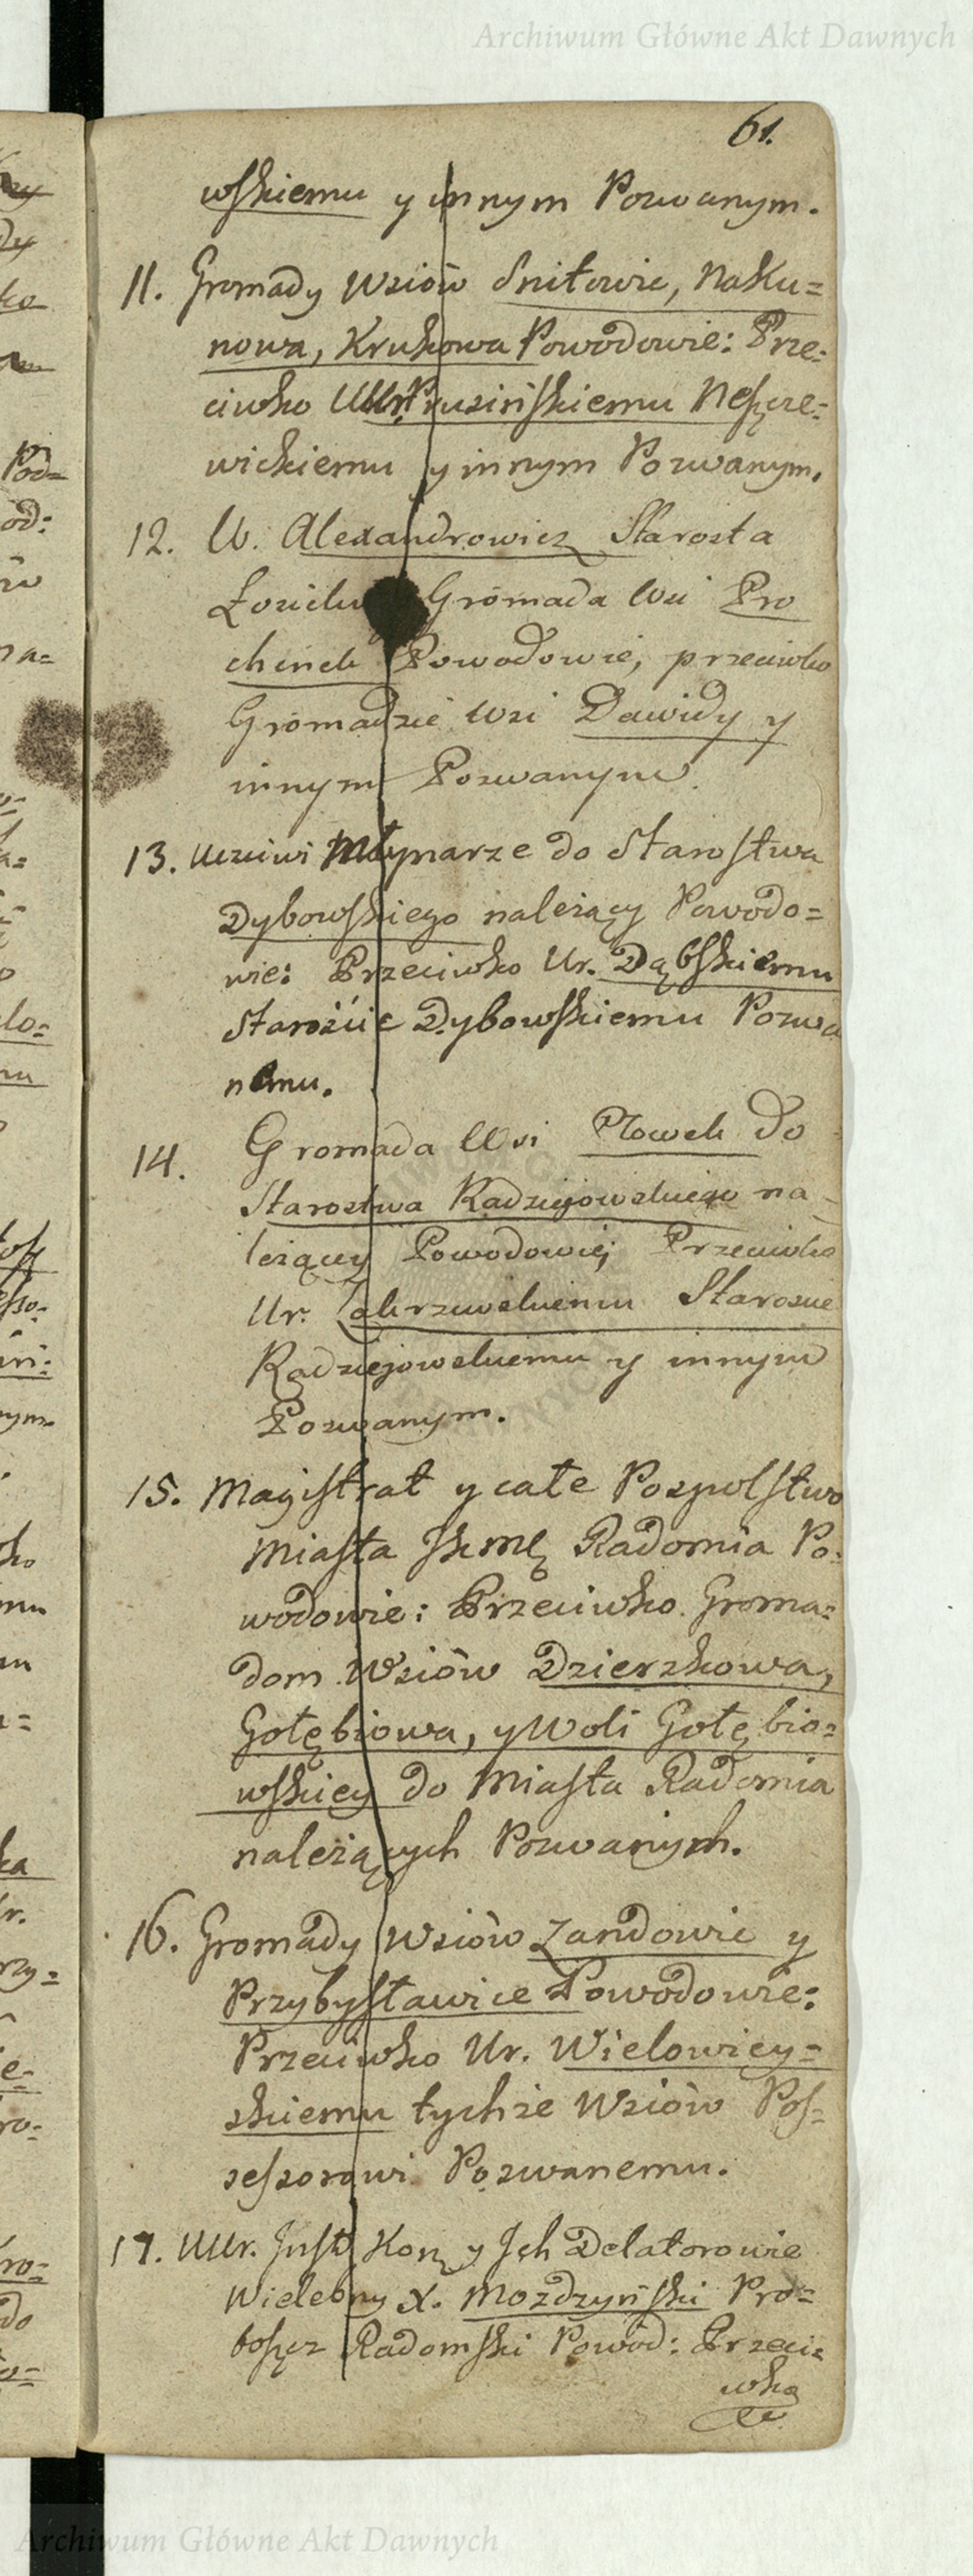 Archiwum Główne Akt Dawnych
61.
wskiemu y innym Pozwanym.
11. Gromady Wsiów Snitowic, Naku=
nowa, Krukowa Powodowie: Prze=
ciwko UUr. Prusińskiemu
wickiemu y innym Pozwanym.
12. U. Alexandrowicz Starosta
Gromada Wsi Pro
chenek Powodowie, przeciwko
Gromadzie Wsi Dawidy y
innym Pozwanym.
13. Uczciwi Młynarze do Starostwa
Dybowskiego należący Powodo=
wie: Przeciwko Ur. Dąbskiemu
Staroście Dybowskiemu Pozwa
nemu.
14. Gromada Wsi Płowek do
Starostwa Radziejowskiego na
leżący Powodowie; Przeciwko
Ur. Zakrzewskiemu Staroscie
Radziejowskiemu y innym
Pozwanym.
15. Magistrat y całe Pospolstwo
Miasta JKMci Radomia Po=
wodowie: Przeciwko Groma=
dom Wsiów Dzierzkowa,
Gołębiowa, y Woli Gołębio=
wskiey do Miasta Radomia
należących Pozwanych.
16. Gromady Wsiów Zandowic y
Przybysławice Powodowie:
Przeciwko Ur. Wielowiey=
skiemu tychże Wsiów Pos=
sessorowi Pozwanemu.
17. UUr. Inst. Kor. y Jch Delatorowie
Wielebny X. Mozdzyński Pro=
boszcz Radomski Powod: Przeci=
wko
Archiwum Główne Akt Dawnych